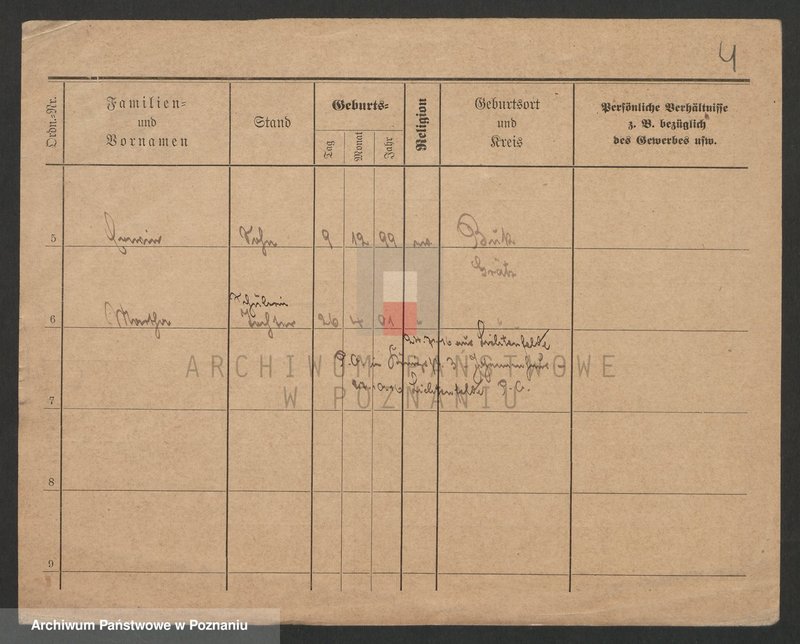 4
Ordn.-Nr.
Familien-
und
Vornamen
Stand
Geburts-
Tag
Monat
Jahr
Religion
Geburtsort
und
Kreis
Persönliche Verhältnisse
z. B. bezüglich
des Gewerbes usw.
5 Sohn 9 12 99 ev Buk
Grätz
Schülerin
6 Martha Tochter 26 4 01
aus Lichtenfelde
ARCHIWUM PAŃSTWOWE
W POZNANIU
7
8
9
Archiwum Państwowe w Poznaniu